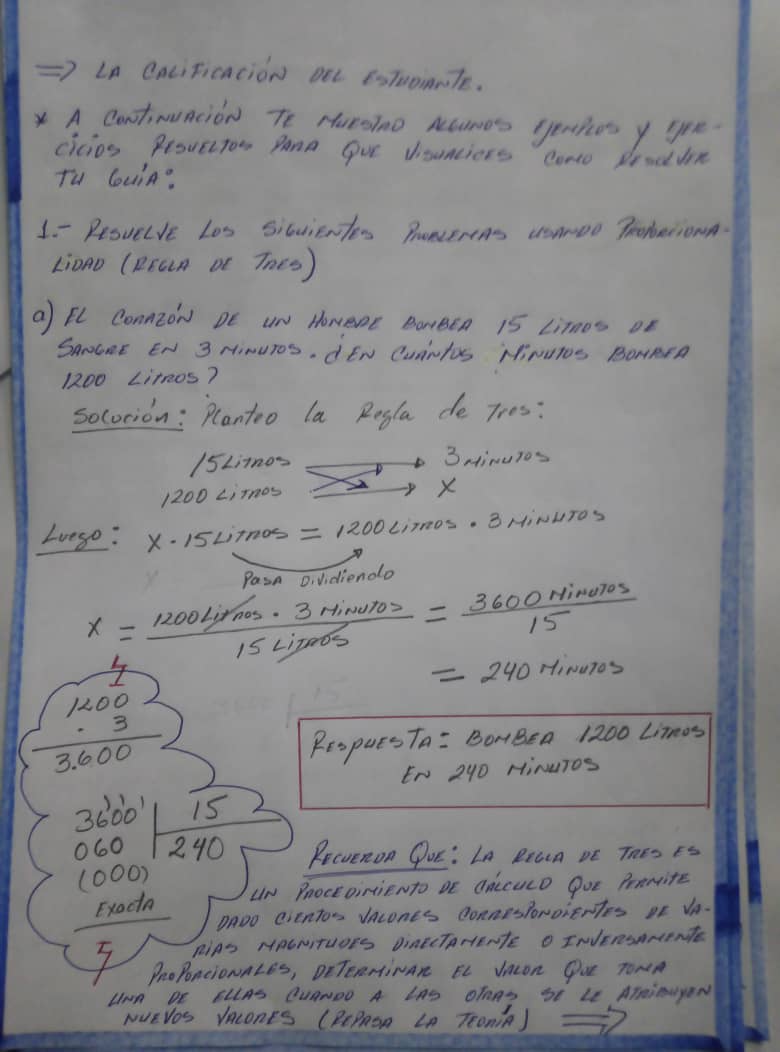 => LA CALIFICACIÓN DEL ESTUDIANTE.
* A CONTINUACIÓN TE MUESTRO ALGUNOS EJEMPLOS Y EJER-
CICIOS RESUELTOS PARA QUE VISUALICES COMO RESOLVER
TU GUÍA:
1.- RESUELVE LOS SIGUIENTES PROBLEMAS USANDO PROPORCIONA-
LIDAD (REGLA DE TRES)
a) EL CORAZÓN DE UN HOMBRE BOMBEA 15 LITROS DE
SANGRE EN 3 MINUTOS. ¿EN CUÁNTOS MINUTOS BOMBEA
1200 LITROS?
Solución: Planteo la Regla de Tres:
15 LITROS → 3 MINUTOS
1200 LITROS → X
Luego: X · 15 LITROS = 1200 LITROS · 3 MINUTOS
PASA DIVIDIENDO
X = 1200 LITROS · 3 MINUTOS / 15 LITROS = 3600 MINUTOS / 15
= 240 MINUTOS
1200
· 3
3.600
3600 | 15
060 | 240
(000)
Exacta
RESPUESTA: BOMBEA 1200 LITROS
EN 240 MINUTOS
RECUERDA QUE: LA REGLA DE TRES ES
UN PROCEDIMIENTO DE CÁLCULO QUE PERMITE
DADO CIERTOS VALORES CORRESPONDIENTES DE VA-
RIAS MAGNITUDES DIRECTAMENTE O INVERSAMENTE
PROPORCIONALES, DETERMINAR EL VALOR QUE TOMA
UNA DE ELLAS CUANDO A LAS OTRAS SE LE ATRIBUYEN
NUEVOS VALORES (REPASA LA TEORÍA) =>